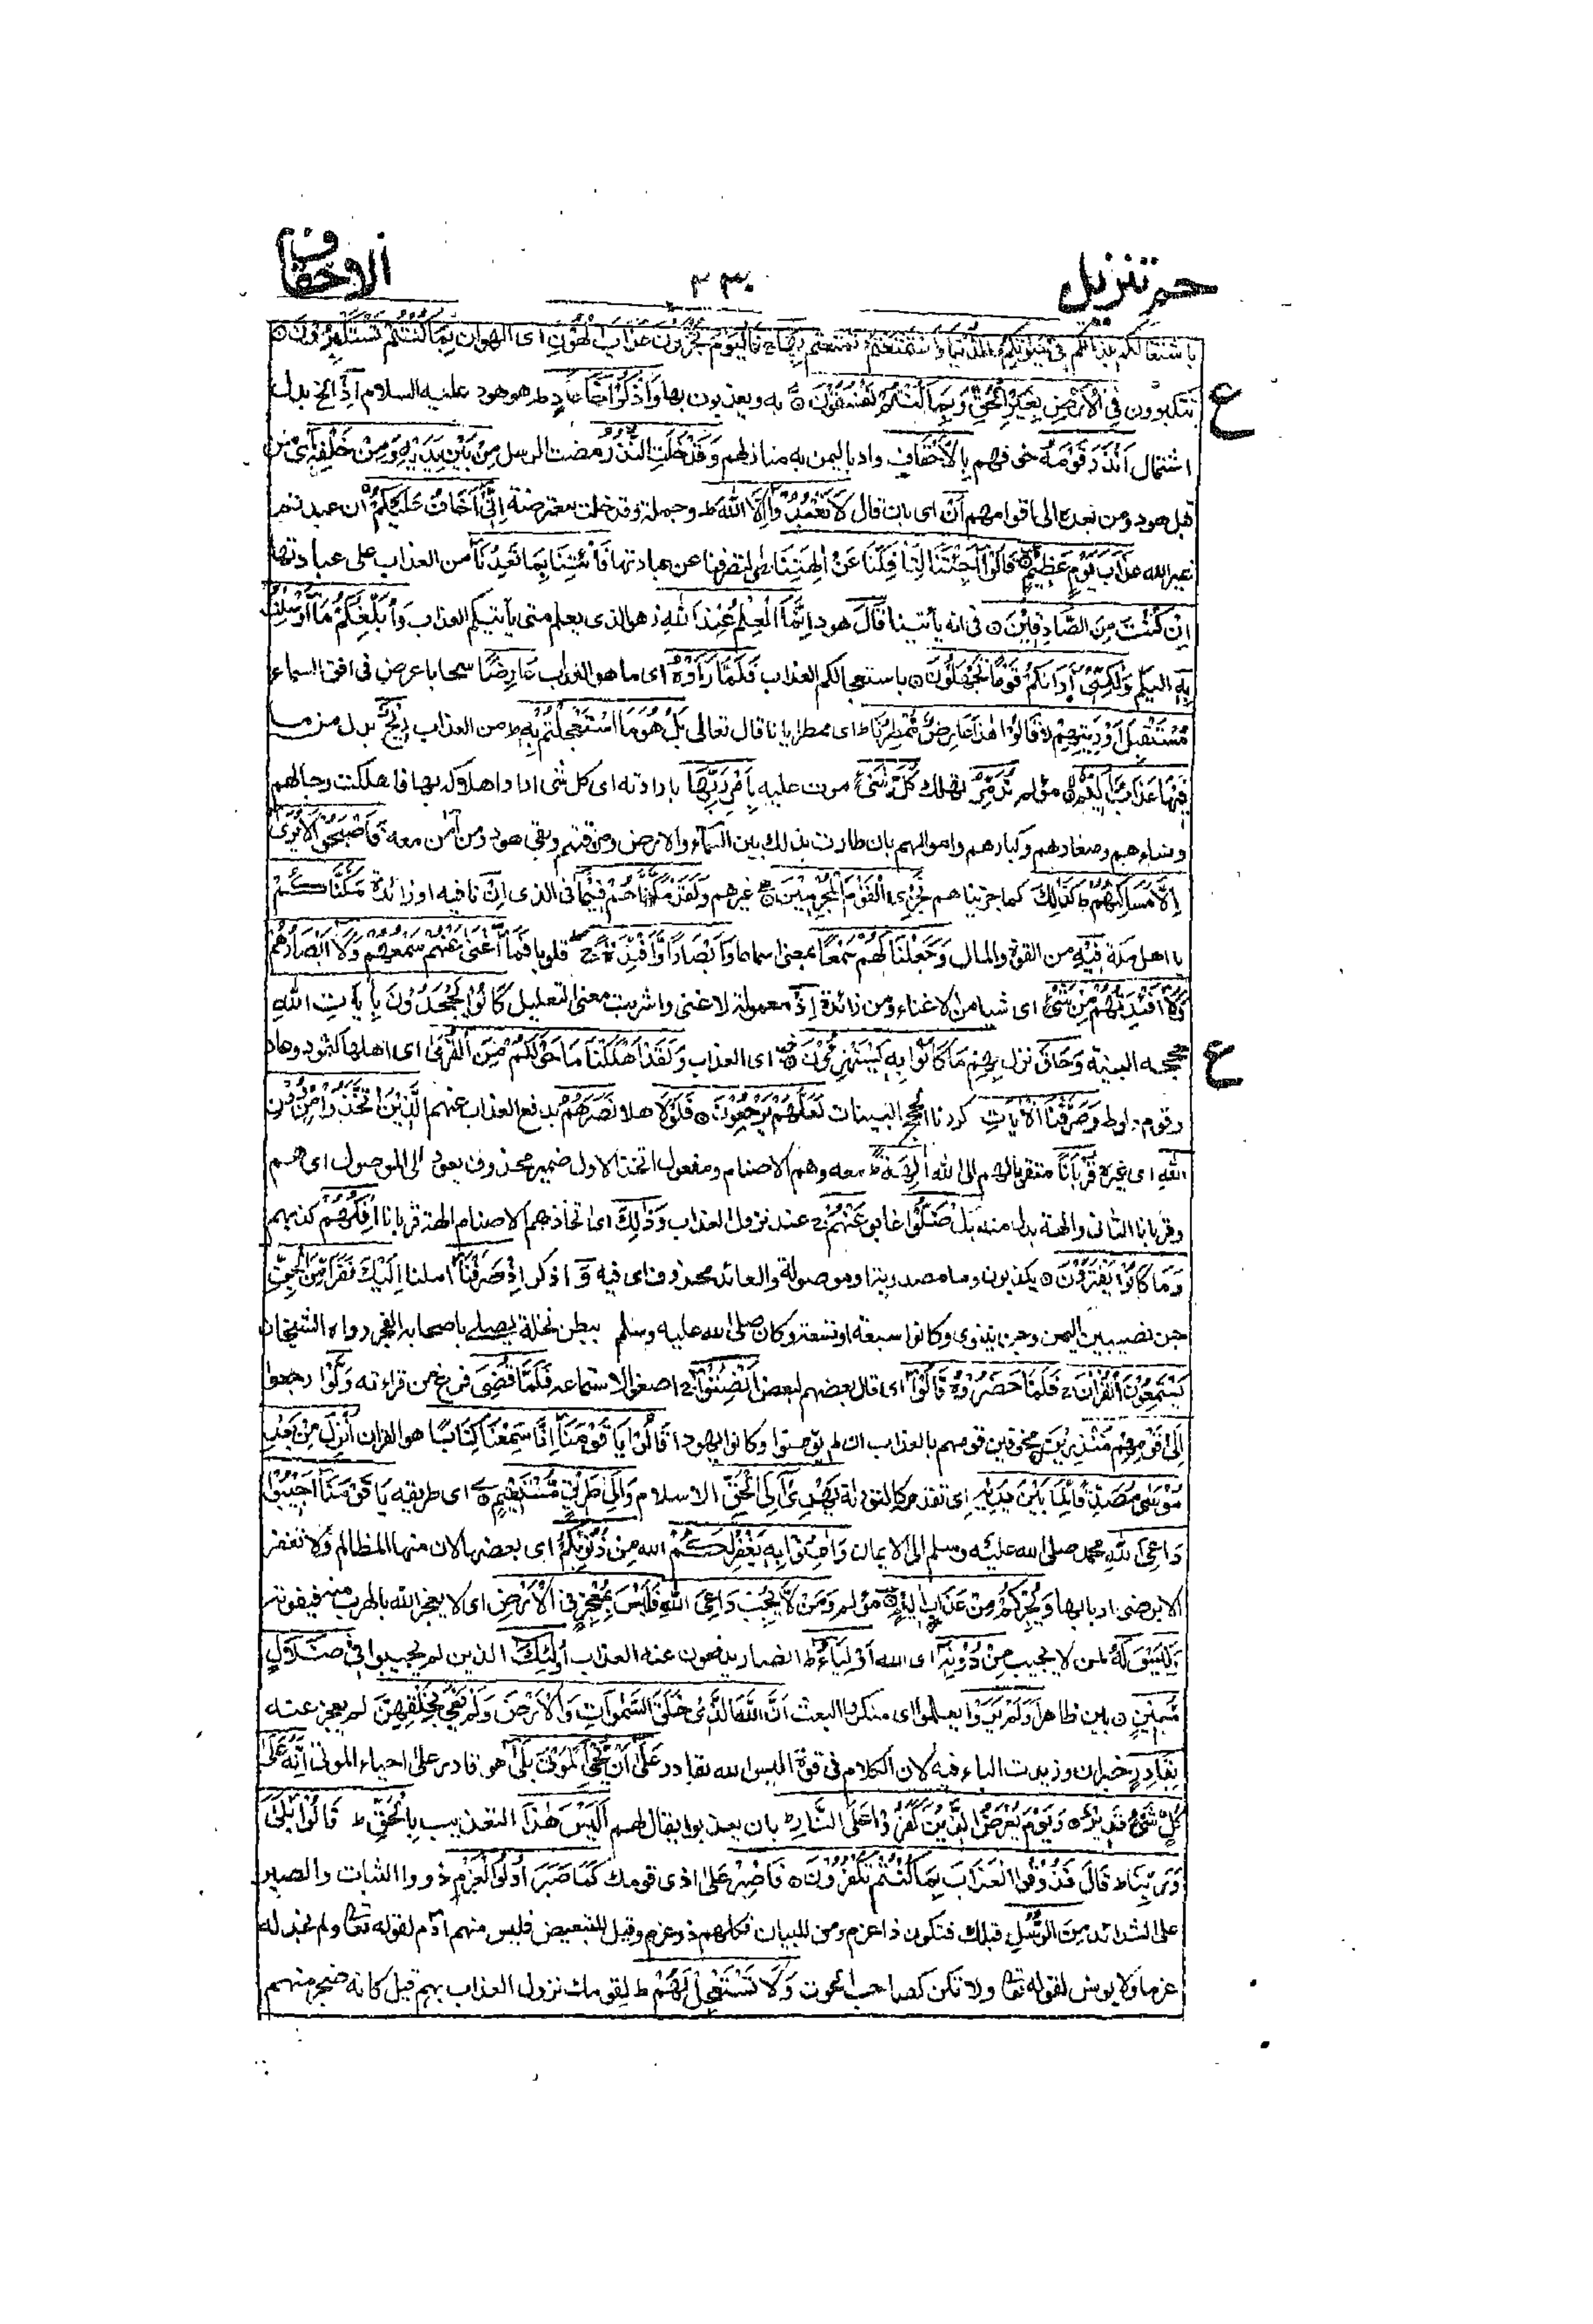 حم تنزيل
٣٣٠
الاحقاف
باشتغالكم بلذاتكم فِيْ حَيٰوتِكُمُ الدُّنْيَا وَاسْتَمْتَعْتُمْ تمتعتم بِهَا ج فَالْيَوْمَ تُجْزَوْنَ عَذَابَ الْهُوْنِ اى الهوان بِمَا كُنْتُمْ تَسْتَكْبِرُوْنَ ۝
تتكبرون فِي الْاَرْضِ بِغَيْرِ الْحَقِّ وَبِمَا كُنْتُمْ تَفْسُقُوْنَ ۝ به ويعذبون بها وَاذْكُرْ اَخَا عَادٍ ط هو هود عليه السلام اِذْ الخ بدل
ع
اشتمال اَنْذَرَ قَوْمَهٗ خوفهم بِالْاَحْقَافِ واد باليمن به منازلهم وَقَدْ خَلَتِ النُّذُرُ مضت الرسل مِنْ بَيْنِ يَدَيْهِ وَمِنْ خَلْفِهٖٓ اى من
قبل هود ومن بعده الى اقوامهم اَنْ اى بان قال لَا تَعْبُدُوْٓا اِلَّا اللّٰهَ ط وجملة وقد خلت معترضة اِنِّيْٓ اَخَافُ عَلَيْكُمْ ان عبدتم
غير الله عَذَابَ يَوْمٍ عَظِيْمٍ ۝ قَالُوْٓا اَجِئْتَنَا لِتَاْفِكَنَا عَنْ اٰلِهَتِنَا ط لتصرفنا عن عبادتها فَاْتِنَا بِمَا تَعِدُنَآ من العذاب على عبادتها
اِنْ كُنْتَ مِنَ الصَّادِقِيْنَ ۝ فى انه ياتينا قَالَ هود اِنَّمَا الْعِلْمُ عِنْدَ اللّٰهِ ز هو الذى يعلم متى يأتيكم العذاب وَاُبَلِّغُكُمْ مَّآ اُرْسِلْتُ
بِهٖ اليكم وَلٰكِنِّيْٓ اَرَاكُمْ قَوْمًا تَجْهَلُوْنَ ۝ باستعجالكم العذاب فَلَمَّا رَاَوْهُ اى ما هو العذاب عَارِضًا سحابا عرض فى افق السماء
مُّسْتَقْبِلَ اَوْدِيَتِهِمْ لا قَالُوْا هٰذَا عَارِضٌ مُّمْطِرُنَا ط اى ممطر ايانا قال تعالى بَلْ هُوَ مَا اسْتَعْجَلْتُمْ بِهٖ ط من العذاب رِيْحٌ بدل من ما
فِيْهَا عَذَابٌ اَلِيْمٌ ۝ مؤلم تُدَمِّرُ تهلك كُلَّ شَيْءٍ مرت عليه بِاَمْرِ رَبِّهَا بارادته اى كل شى اراد اهلاكه بها فاهلكت رجالهم
ونساءهم وصغارهم وكبارهم واموالهم بان طارت بذلك بين السماء والارض ومزقتهم وبقى هود ومن آمن معه فَاَصْبَحُوْا لَا يُرٰٓى
اِلَّا مَسَاكِنُهُمْ ط كَذٰلِكَ كما جزيناهم نَجْزِي الْقَوْمَ الْمُجْرِمِيْنَ ۝ غيرهم وَلَقَدْ مَكَّنَّاهُمْ فِيْمَآ فى الذى اِنْ نافية او زائدة مَّكَّنَّاكُمْ
يا اهل مكة فِيْهِ من القوة والمال وَجَعَلْنَا لَهُمْ سَمْعًا بمعنى اسماعا وَّاَبْصَارًا وَّاَفْئِدَةً ز قلوبا فَمَآ اَغْنٰى عَنْهُمْ سَمْعُهُمْ وَلَآ اَبْصَارُهُمْ
وَلَآ اَفْئِدَتُهُمْ مِّنْ شَيْءٍ اى شيا من الاغناء ومن زائدة اِذْ معمولة لاغنى واشربت معنى التعليل كَانُوْا يَجْحَدُوْنَ بِاٰيٰتِ اللّٰهِ
حججه البينة وَحَاقَ نزل بِهِمْ مَّا كَانُوْا بِهٖ يَسْتَهْزِءُوْنَ ۝ اى العذاب وَلَقَدْ اَهْلَكْنَا مَا حَوْلَكُمْ مِّنَ الْقُرٰى اى اهلها كثمود وعاد
ع
وقوم لوط وَصَرَّفْنَا الْاٰيَاتِ كررنا الحجج البينات لَعَلَّهُمْ يَرْجِعُوْنَ ۝ فَلَوْلَا هلا نَصَرَهُمُ بدفع العذاب عنهم الَّذِيْنَ اتَّخَذُوْا مِنْ دُوْنِ
اللّٰهِ اى غيره قُرْبَانًا متقربا بهم الى الله اٰلِهَةً ط معه وهم الاصنام ومفعول اتخذ الاول ضمير محذوف يعود الى الموصول اى هم
وقربانا الثانى والهة بدل منه بَلْ ضَلُّوْا غابوا عَنْهُمْ ج عند نزول العذاب وَذٰلِكَ اى اتخاذهم الاصنام الهة قربانا اِفْكُهُمْ كذبهم
وَمَا كَانُوْا يَفْتَرُوْنَ ۝ يكذبون وما مصدرية او موصولة والعائد محذوف اى فيه وَ اذكر اِذْ صَرَفْنَآ املنا اِلَيْكَ نَفَرًا مِّنَ الْجِنِّ
جن نصيبين اليمن وجن نينوى وكانوا سبعة او تسعة وكان صلى الله عليه وسلم ببطن نخلة يصلى باصحابه الفجر رواه الشيخان
يَسْتَمِعُوْنَ الْقُرْاٰنَ ج فَلَمَّا حَضَرُوْهُ قَالُوْٓا اى قال بعضهم لبعض اَنْصِتُوْا ج اصغوا لاستماعه فَلَمَّا قُضِيَ فرغ من قراءته وَلَّوْا رجعوا
اِلٰى قَوْمِهِمْ مُّنْذِرِيْنَ ۝ مخوفين قومهم بالعذاب ان لم يؤمنوا وكانوا يهودا قَالُوْا يَا قَوْمَنَآ اِنَّا سَمِعْنَا كِتَابًا هو القران اُنْزِلَ مِنْ بَعْدِ
مُوْسٰى مُصَدِّقًا لِّمَا بَيْنَ يَدَيْهِ اى تقدمه كالتورىة يَهْدِيْٓ اِلَى الْحَقِّ الاسلام وَاِلٰى طَرِيْقٍ مُّسْتَقِيْمٍ ۝ اى طريقه يَا قَوْمَنَآ اَجِيْبُوْا
دَاعِيَ اللّٰهِ محمد صلى الله عليه وسلم الى الايمان وَاٰمِنُوْا بِهٖ يَغْفِرْ لَكُمْ الله مِنْ ذُنُوْبِكُمْ اى بعضها لان منها المظالم ولا تغفر
الا برضى اربابها وَيُجِرْكُمْ مِّنْ عَذَابٍ اَلِيْمٍ ۝ مؤلم وَمَنْ لَّا يُجِبْ دَاعِيَ اللّٰهِ فَلَيْسَ بِمُعْجِزٍ فِي الْاَرْضِ اى لا يعجز الله بالهرب منه فيفوته
وَلَيْسَ لَهٗ لمن لا يجيب مِنْ دُوْنِهٖٓ اى الله اَوْلِيَآءُ ط انصار يدفعون عنه العذاب اُولٰٓئِكَ الذين لم يجيبوا فِيْ ضَلَالٍ
مُّبِيْنٍ ۝ بين ظاهر اَوَلَمْ يَرَوْا يعلموا اى منكرو البعث اَنَّ اللّٰهَ الَّذِيْ خَلَقَ السَّمٰوَاتِ وَالْاَرْضَ وَلَمْ يَعْيَ بِخَلْقِهِنَّ لم يعجز عنه
بِقَادِرٍ خبر ان وزيدت الباء فيه لان الكلام فى قوة اليس الله بقادر عَلٰٓى اَنْ يُّحْيِيَ الْمَوْتٰى ط بَلٰٓى هو قادر على احياء الموتى اِنَّهٗ عَلٰى
كُلِّ شَيْءٍ قَدِيْرٌ ۝ وَيَوْمَ يُعْرَضُ الَّذِيْنَ كَفَرُوْا عَلَى النَّارِ ط بان يعذبوا بها يقال لهم اَلَيْسَ هٰذَا التعذيب بِالْحَقِّ ط قَالُوْا بَلٰى
وَرَبِّنَا ط قَالَ فَذُوْقُوا الْعَذَابَ بِمَا كُنْتُمْ تَكْفُرُوْنَ ۝ فَاصْبِرْ على اذى قومك كَمَا صَبَرَ اُولُوا الْعَزْمِ ذووا الثبات والصبر
على الشدائد مِنَ الرُّسُلِ قبلك فتكون ذا عزم ومن للبيان فكلهم ذو عزم وقيل للتبعيض فليس منهم آدم لقوله تعالى ولم نجد له
عزما ولا يونس لقوله تعالى ولا تكن كصاحب الحوت وَلَا تَسْتَعْجِلْ لَّهُمْ ط لقومك نزول العذاب بهم قيل كانه ضجر منهم